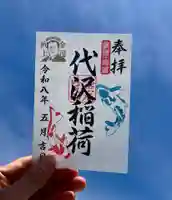 奉拝
代沢稲荷
令和八年五月吉日